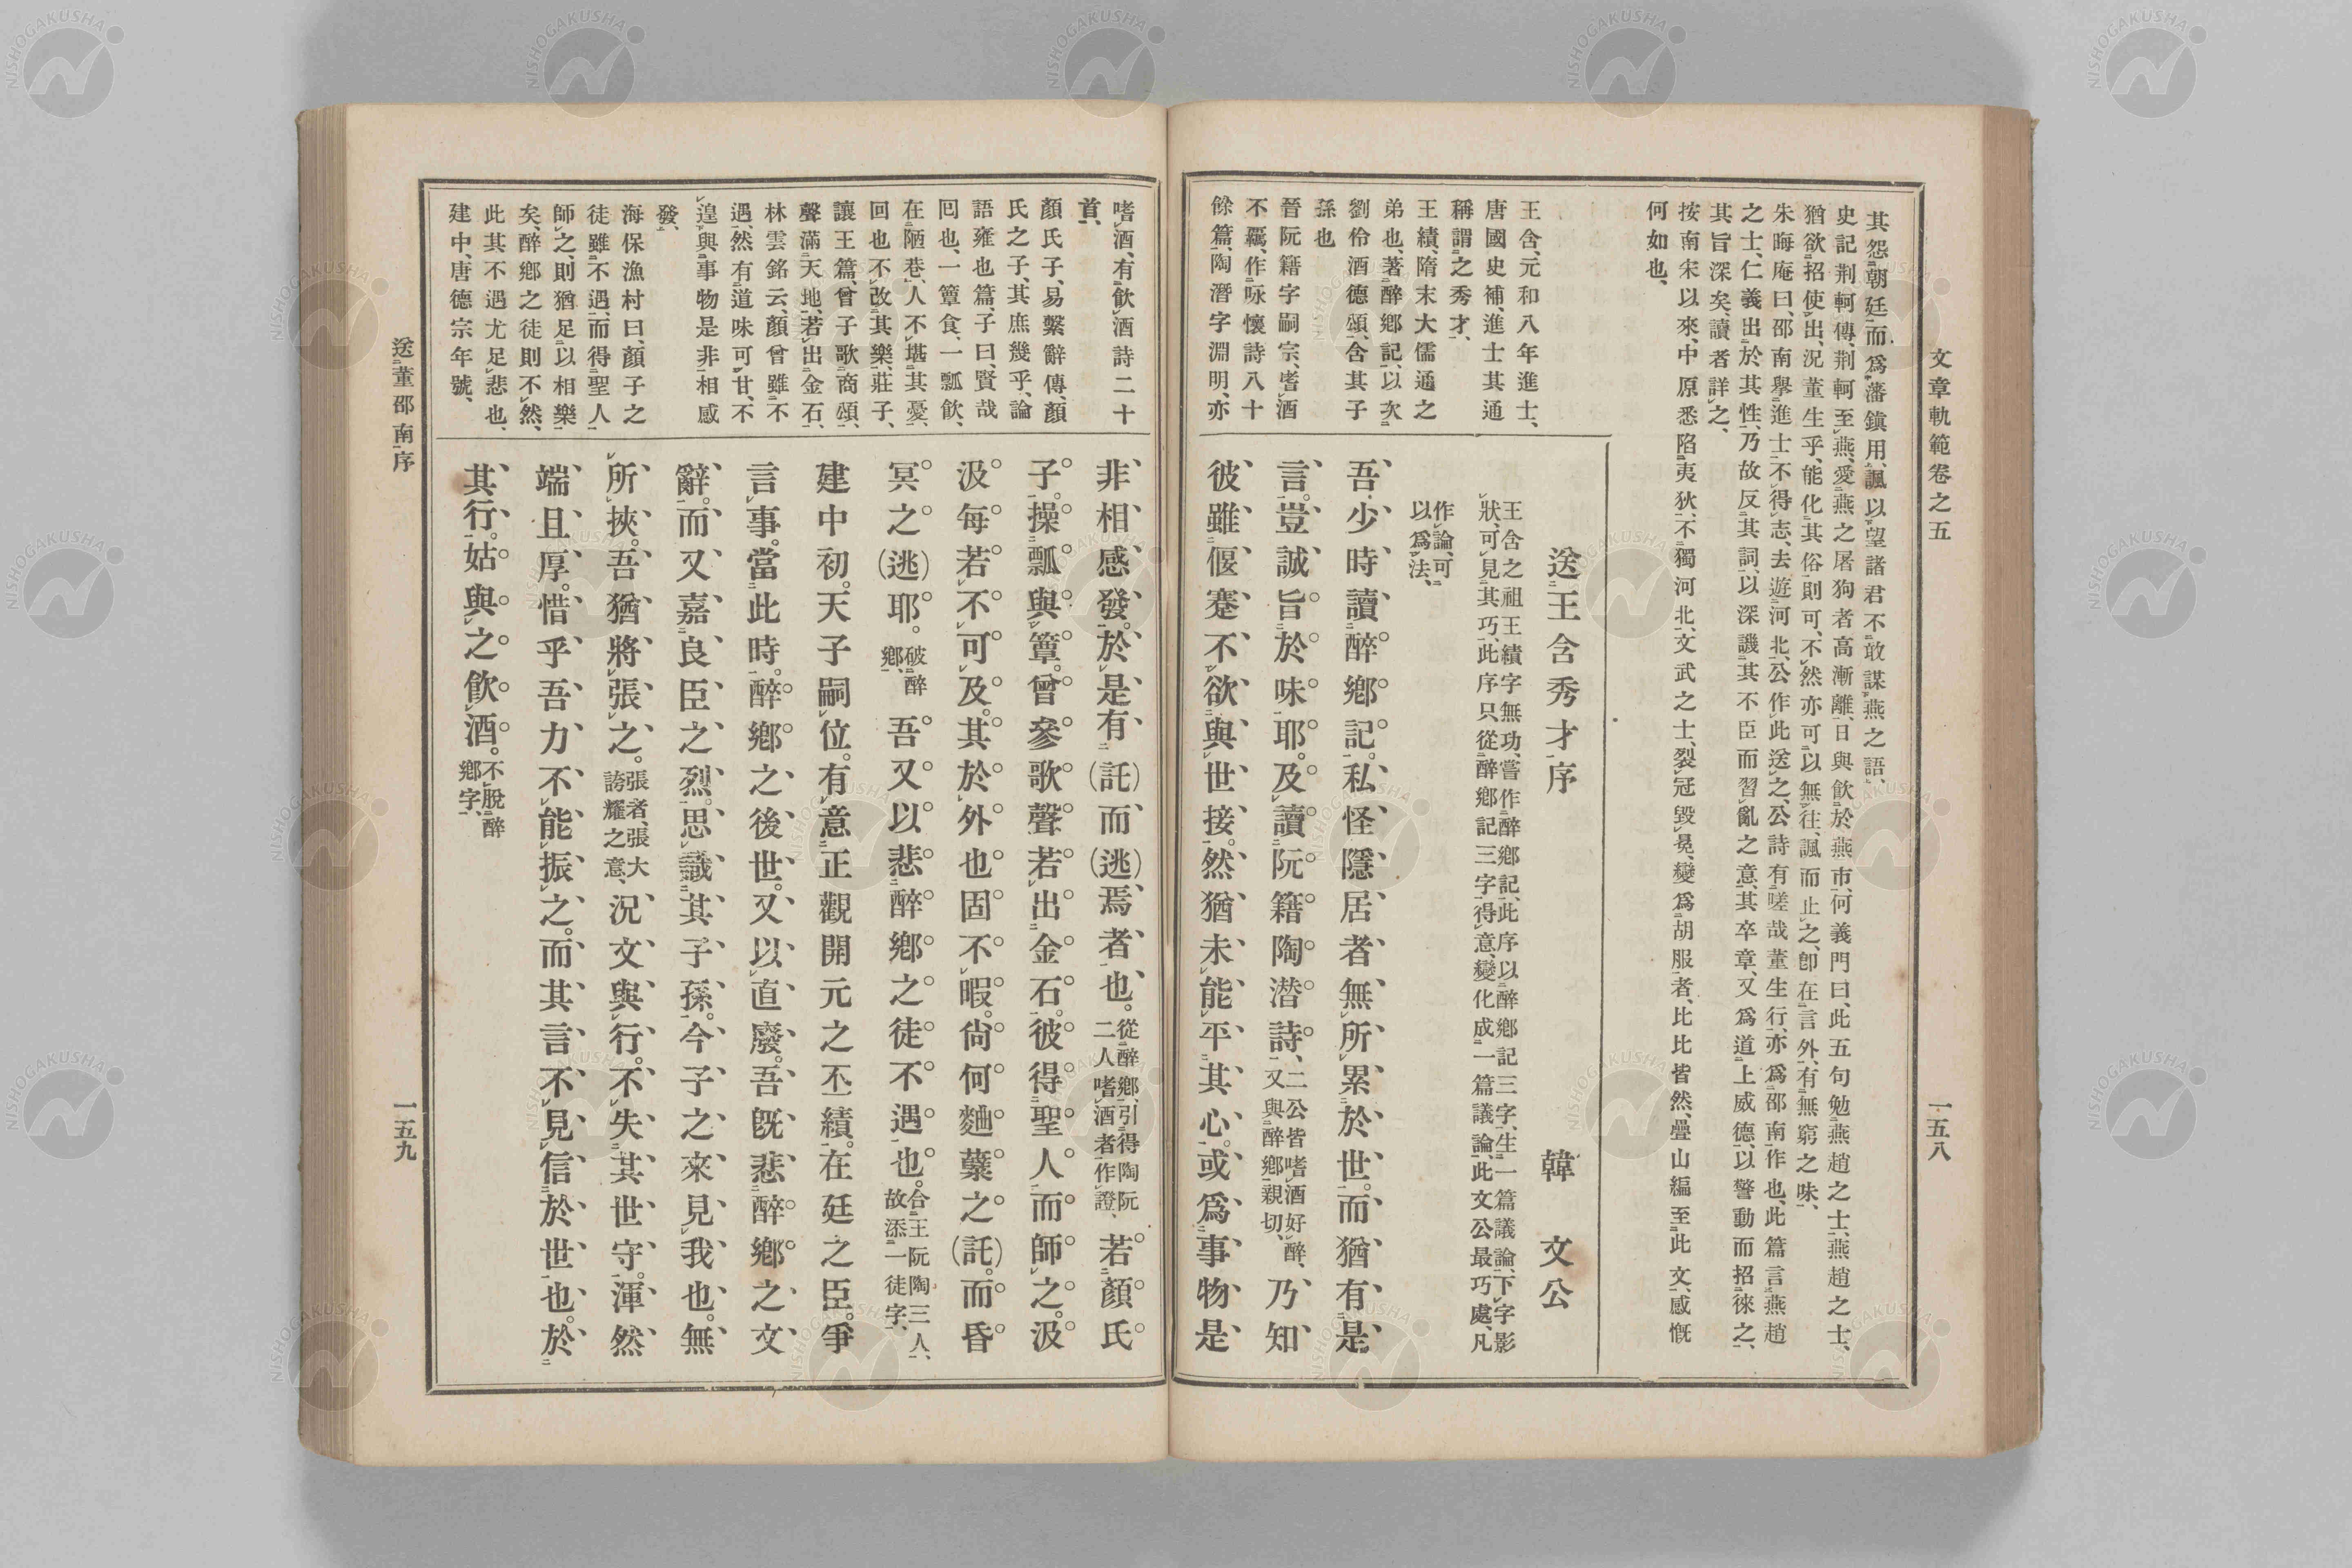 文章軌範卷之五
一五八
其怨朝廷而爲藩鎭用、諷以望諸君不敢謀燕之語、
史記荆軻傳、荆軻至燕、愛燕之屠狗者高漸離、日與飮於燕市、何義門曰、此五句勉燕趙之士、燕趙之士、
猶欲招使出、況董生乎、能化其俗則可、不然亦可以無往、諷而止之、卽在言外、有無窮之味、
朱晦庵曰、邵南擧進士不得志、去遊河北、公作此送之、公詩有嗟哉董生行、亦爲邵南作也、此篇言燕趙
之士、仁義出於其性、乃故反其詞、以深譏其不臣而習亂之意、其卒章、又爲道上威德、以警動而招徠之、
其旨深矣、讀者詳之、
按南宋以來、中原悉陷夷狄、不獨河北、文武之士、裂冠毀冕、變爲胡服者、比比皆然、疊山編至此文、感慨
何如也、
王含、元和八年進士、
唐國史補、進士其通
稱謂之秀才、
王績、隋末大儒通之
弟也、著醉鄕記、以次
劉伶酒德頌、含其子
孫也
晉阮籍字嗣宗、嗜酒
不羈、作咏懷詩八十
餘篇、陶潛字淵明、亦
送王含秀才序
韓文公
王含之祖王績字無功、嘗作醉鄕記、此序以醉鄕記三字、生一篇議論、下字影
狀、可見其巧、此序只從醉鄕記三字得意、變化成一篇議論、此文公最巧處、凡
作論、可
以爲法、
吾少時讀醉鄕記。私怪隱居者無所累於世。而猶有是
言。豈誠旨於味耶。及讀阮籍陶潛詩、二公皆嗜酒好醉、
又與醉鄕親切、乃知
彼雖偃蹇不欲與世接。然猶未能平其心。或爲事物是
嗜酒、有飮酒詩二十
首、
顏氏子、易繫辭傳、顏
氏之子、其庶幾乎、論
語雍也篇、子曰、賢哉
回也、一簞食、一瓢飮、
在陋巷、人不堪其憂、
回也不改其樂、莊子、
讓王篇、曾子歌商頌、
聲滿天地、若出金石、
林雲銘云、顏曾雖不
遇、然有道味可甘、不
遑與事物是非相感
發、
海保漁村曰、顏子之
徒雖不遇、而得聖人
師之、則猶足以相樂
矣、醉鄕之徒則不然、
此其不遇尤足悲也、
建中、唐德宗年號、
非相感發。於是有(託)而(逃)焉者也。從醉鄕、引得陶阮
二人嗜酒者作證、若顏氏
子。操瓢與簞。曾參歌聲若出金石。彼得聖人而師之。汲
汲每若不可及。其於外也固不暇。尙何麯蘖之(託)。而昏
冥之(逃)耶。破醉
鄕、吾又以悲醉鄕之徒不遇也。合王阮陶三人、
故添一徒字、
建中初。天子嗣位。有意正觀開元之丕績。在廷之臣。爭
言事。當此時。醉鄕之後世。又以直廢。吾旣悲醉鄕之文
辭。而又嘉良臣之烈。思識其子孫。今子之來見我也。無
所挾。吾猶將張之。張者、張大
誇耀之意、況文與行。不失其世守。渾然
端且厚。惜乎吾力不能振之。而其言不見信於世也。於
其行。姑與之飮酒。不脫醉
鄕字、
送董邵南序
一五九